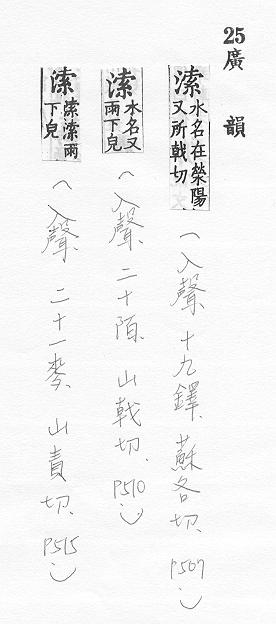 25廣韻
溹 水名在滎陽又所戟切（入聲、十九鐸、蘇各切、P507）
溹 水名又兩下皃（入聲、二十陌、山戟切、P510）
溹 溹溹雨下皃（入聲、二十一麥、山責切、P515）